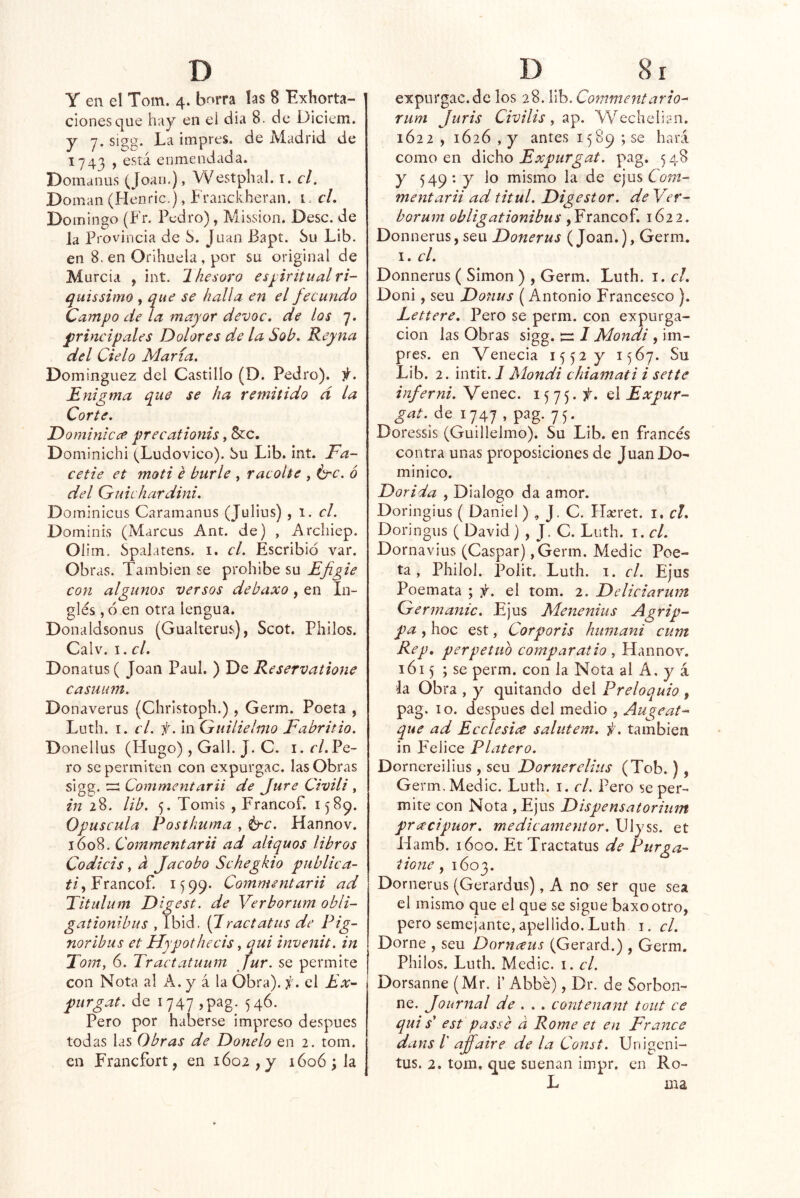 D
Y en el Tom. 4. borra las 8 Exhorta-
ciones que hay en el dia 8. de Diciem.
y 7. sigg. La impres. de Madrid de
1743 , está enmendada.
Domanus (Joan.), Westphal. 1. cl.
Doman (Henric.), Franckheran. 1. cl.
Domingo (Fr. Pedro), Mission. Desc. de
la Provincia de S. Juan Bapt. Su Lib.
en 8. en Orihuela, por su original de
Murcia , int. Thesoro espiritual ri-
quissimo , que se halla en el fecundo
Campo de la mayor devoc. de los 7.
principales Dolores de la Sob. Reyna
del Cielo María.
Dominguez del Castillo (D. Pedro). ꝟ.
Enigma que se ha remitido á la
Corte.
Dominicæ precationis, &c.
Dominichi (Ludovico). Su Lib. int. Fa-
cetie et moti è burle , racolte , &c. ó
del Guichardini.
Dominicus Caramanus (Julius) , 1. cl.
Dominis (Marcus Ant. de) , Archiep.
Olim. Spalatens. 1. cl. Escribió var.
Obras. Tambien se prohibe su Efigie
con algunos versos debaxo , en In-
glés , ó en otra lengua.
Donaldsonus (Gualterus), Scot. Philos.
Calv. 1. cl.
Donatus ( Joan Paul. ) De Reservatione
casuum.
Donaverus (Christoph.) , Germ. Poeta ,
Luth. 1. cl. ꝟ. in Guilielmo Fabritio.
Donellus (Hugo) , Gall. J. C. 1. cl. Pe-
ro se permiten con expurgac. las Obras
sigg. = Commentarii de Jure Civili ,
in 28. lib. 5. Tomis , Francof. 1589.
Opuscula Posthuma , &c. Hannov.
1608. Commentarii ad aliquos libros
Codicis , à Jacobo Schegkio publica-
ti, Francof. 1599. Commentarii ad
Titulum Digest. de Verborum obli-
gationibus , Ibid. (Tractatus de Pig-
noribus et Hypothecis, qui invenit. in
Tom, 6. Tractatuum Jur. se permite
con Nota al A. y á la Obra). ꝟ. el Ex-
purgat. de 1747 , pag. 546.
Pero por haberse impreso despues
todas las Obras de Donelo en 2. tom.
en Francfort, en 1602 , y 1606 ; la
D 81
expurgac. de los 28. lib. Commentario-
rum Juris Civilis , ap. Wechelian.
1622 , 1626 , y antes 1589 ; se hará
como en dicho Expurgat. pag. 548
y 549 : y lo mismo la de ejus Com-
mentarii ad titul. Digestor. de Ver-
borum obligationibus , Francof. 1622.
Donnerus, seu Donerus (Joan.), Germ.
1. cl.
Donnerus ( Simon ) , Germ. Luth. 1. cl.
Doni , seu Donus ( Antonio Francesco ).
Lettere. Pero se perm. con expurga-
cion las Obras sigg. = I Mondi , im-
pres. en Venecia 1552 y 1567. Su
Lib. 2. intit. I Mondi chiamati i sette
inferni. Venec. 1575. ꝟ. el Expur-
gat. de 1747 , pag. 75.
Doressis (Guillelmo). Su Lib. en francés
contra unas proposiciones de Juan Do-
minico.
Dorida , Dialogo da amor.
Doringius ( Daniel ) , J. C. Hæret. 1. cl.
Doringus ( David ) , J. C. Luth. 1. cl.
Dornavius (Caspar) , Germ. Medic Poe-
ta , Philol. Polit. Luth. 1. cl. Ejus
Poemata ; ꝟ. el tom. 2. Deliciarum
Germanic. Ejus Menenius Agrip-
pa , hoc est , Corporis humani cum
Rep. perpetuò comparatio , Hannov.
1615 ; se perm. con la Nota al A. y á
la Obra , y quitando del Preloquio ,
pag. 10. despues del medio , Augeat-
que ad Ecclesiæ salutem. ꝟ. tambien
in Felice Platero.
Dornereilius , seu Dornerelius (Tob. ) ,
Germ. Medic. Luth. 1. cl. Pero se per-
mite con Nota , Ejus Dispensatorium
præcipuor. medicamentor. Ulyss. et
Hamb. 1600. Et Tractatus de Purga-
tione , 1603.
Dornerus (Gerardus) , A no ser que sea
el mismo que el que se sigue baxo otro,
pero semejante, apellido. Luth 1. cl.
Dorne , seu Dornæus (Gerard.) , Germ.
Philos. Luth. Medic. 1. cl.
Dorsanne (Mr. l' Abbè) , Dr. de Sorbon-
ne. Journal de . . . contenant tout ce
qui s' est passè à Rome et en France
dans l' affaire de la Const. Unigeni-
tus. 2. tom. que suenan impr. en Ro-
L ma